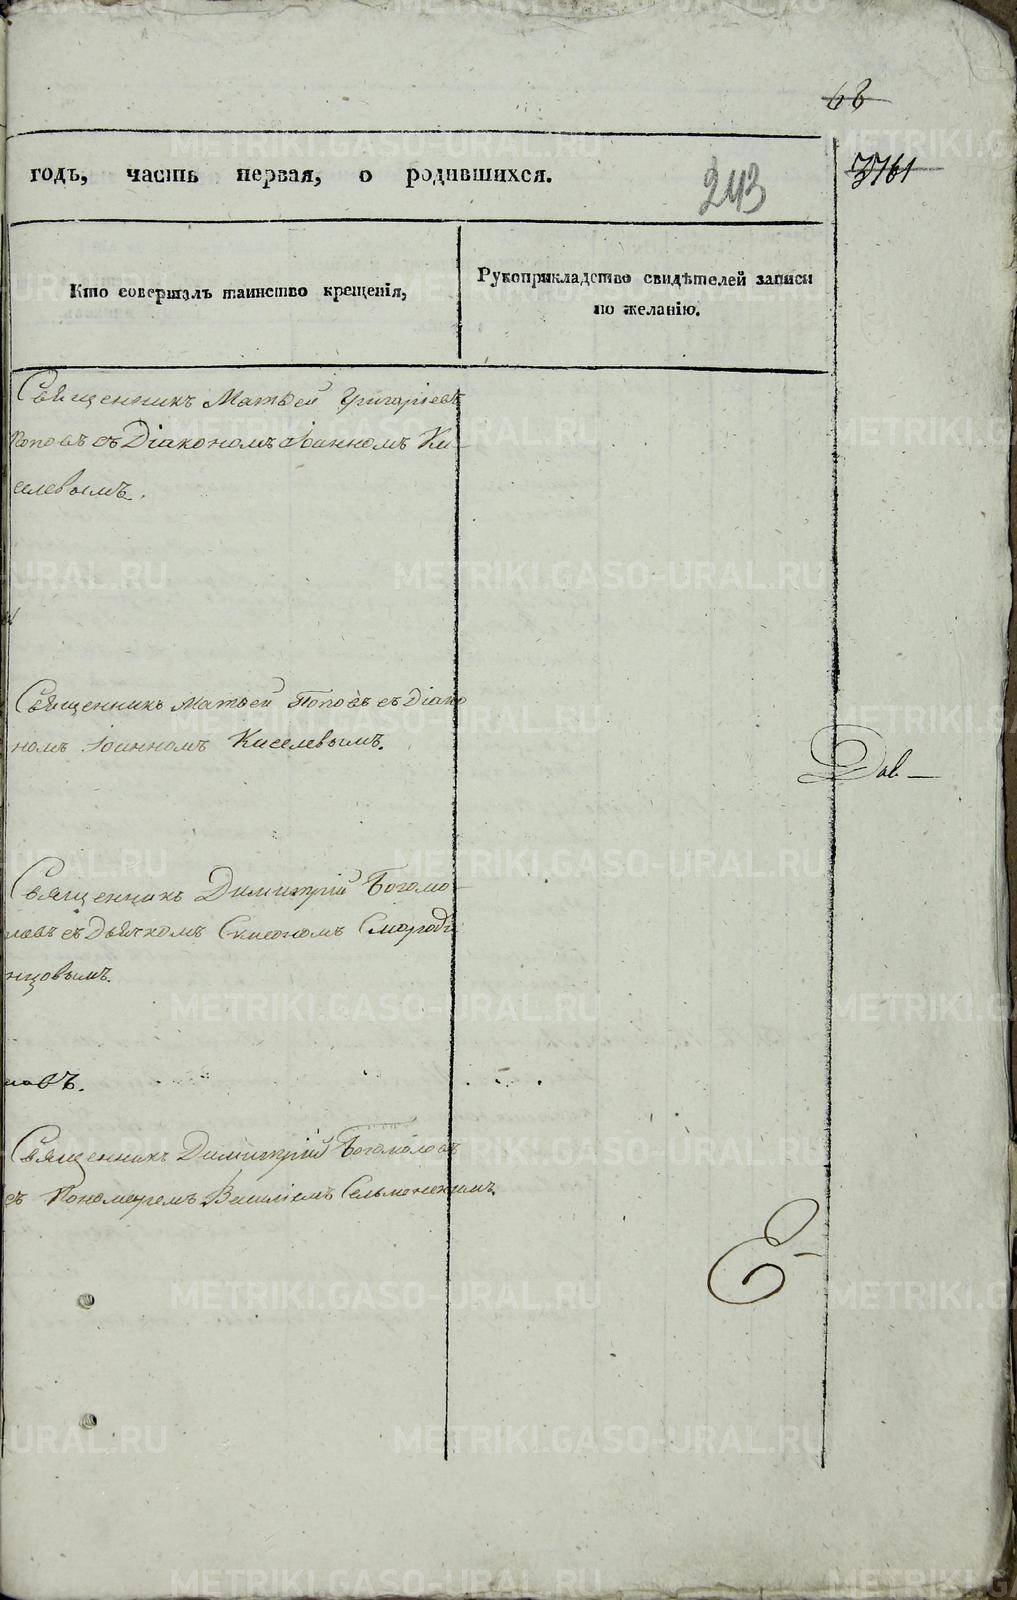 68
3761
годъ, часть первая, о родившихся.
243
Кто совершалъ таинство крещенія,
Рукоприкладство свидѣтелей записи
по желанію.
Священникъ Матвей Григоріевъ
Поповъ съ Діакономъ Іоанномъ Ки-
селевымъ.
Священникъ Матвей Поповъ съ Діако
номъ Іоанномъ Киселевымъ.
Дов—
Священникъ Димитрій Богомо-
ловъ съ Дьячкомъ Симеономъ Смороди
нцовымъ.
новъ.
Священникъ Димитрій Богомоловъ
съ Пономаремъ Василіемъ
METRIKI.GASO-URAL.RU